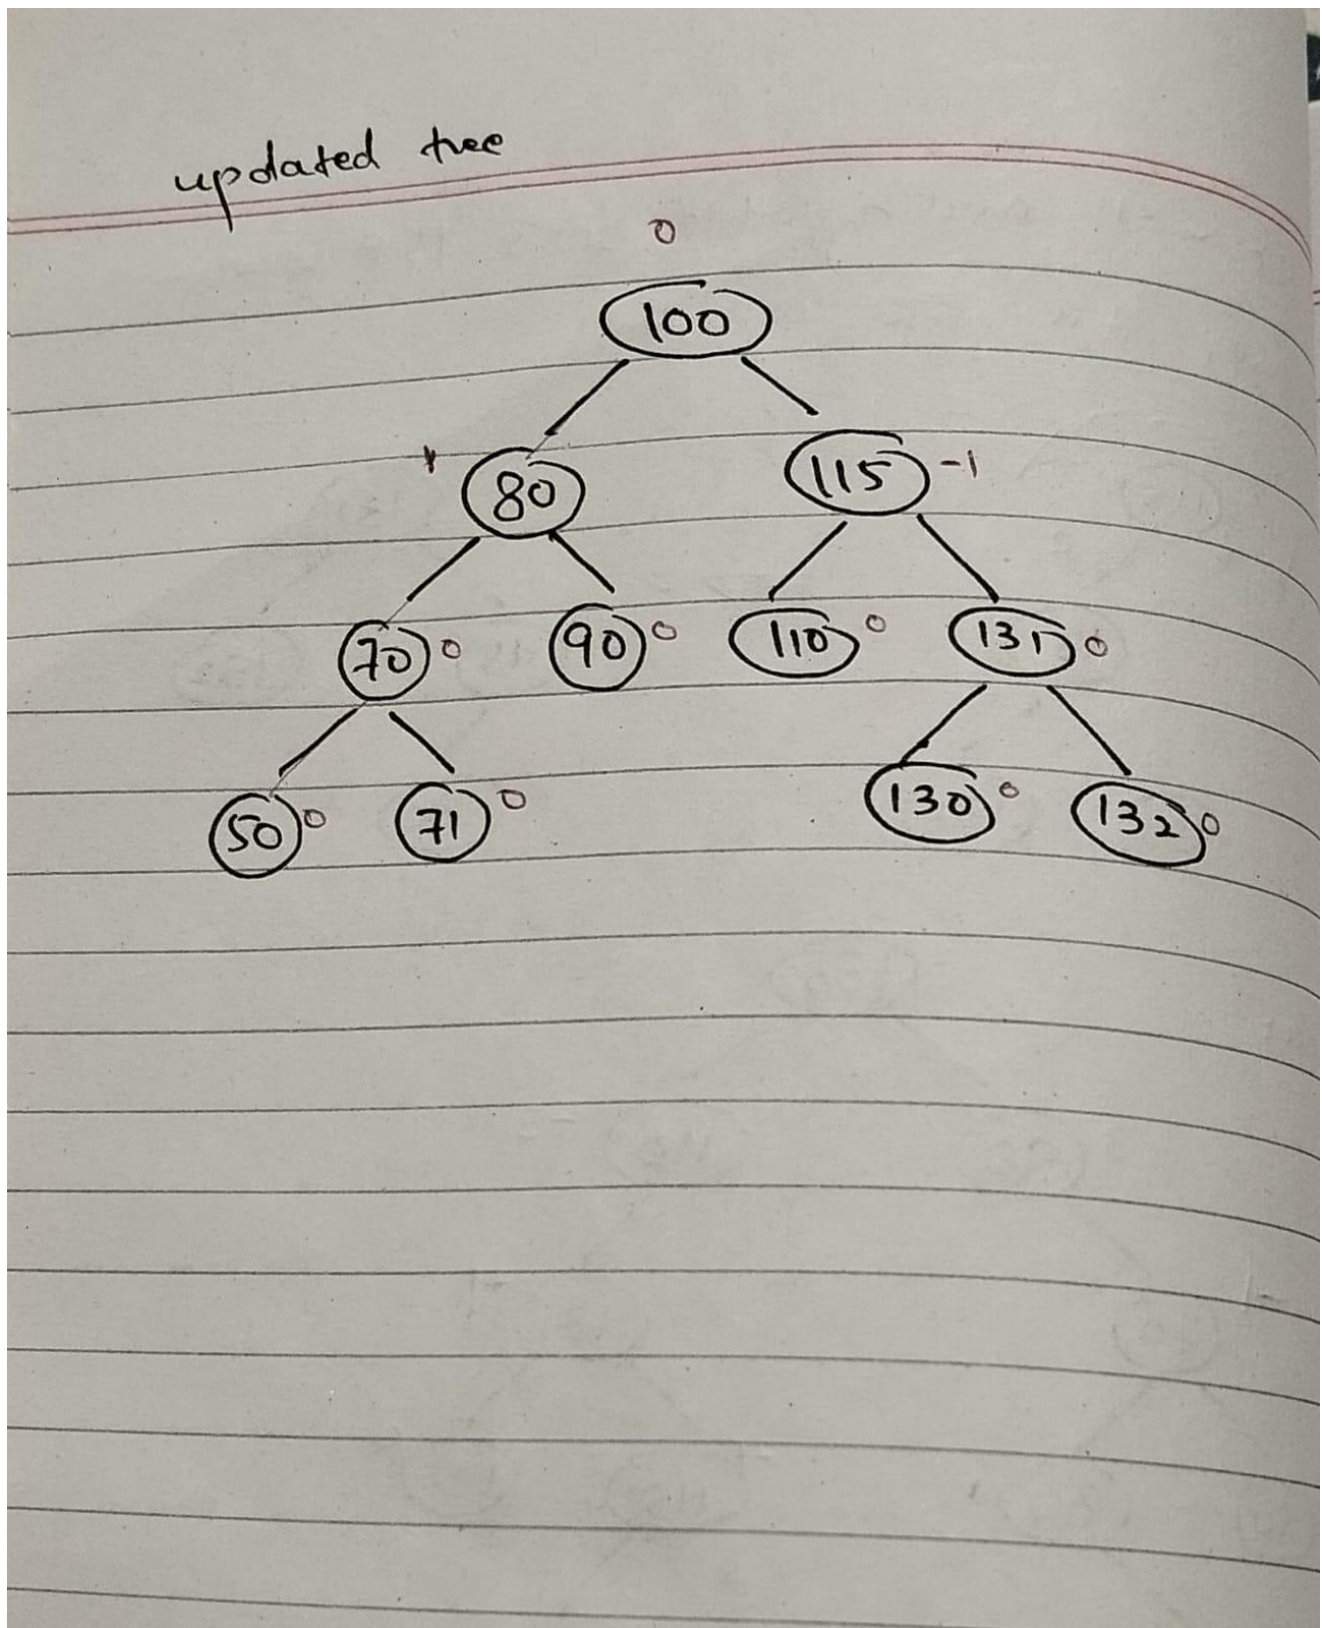 updated tree
0
100
1 80 115 -1
70 0 90 0 110 0 131 0
50 0 71 0 130 0 132 0